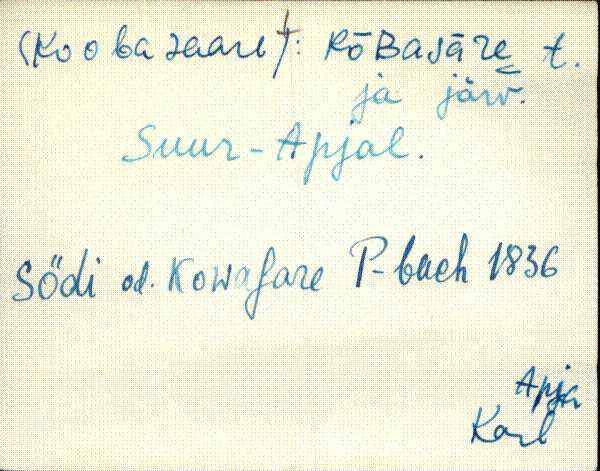 (Koobasaare): KōBasāre t.
ja järv.
Suur-Apjal.
Södi od. Kowasare P-buch 1836
Apja
Karl